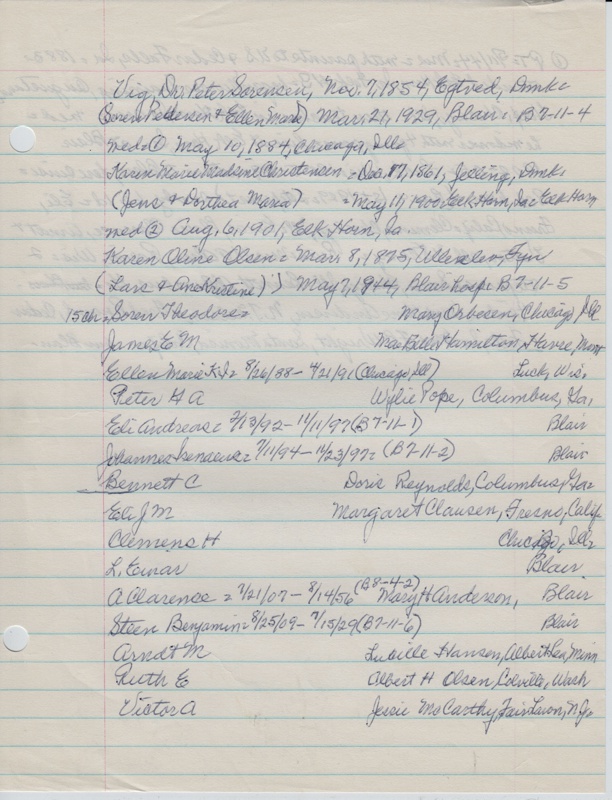 Vig, Dr. Peter Sorensen, Nov. 7, 1854, Egtved, Dmk.
(Soren Pedersen & Ellen Marie) Mar. 21, 1929, Blair. B7-11-4
med ① May 10, 1884, Chicago, Ill.
Karen Marie Madsine Christensen = Dec. 17, 1861, Jelling, Dmk.
(Jens & Dorthea Maria) = May 11, 1900, Elk Horn, Ia. Elk Horn
med ② Aug. 6, 1901, Elk Horn, Ia
Karen Oline Olsen = Mar. 8, 1875, Ullerslev, Fyn
(Lars & Ane Kristine)) May 7, 1944, Blair hosp. B7-11-5
15 ch = Soren Theodore = Mary Orbesen, Chicago, Ill
James E M Mae Hamilton, Havre, Mont
Ellen Marie K. J. = 8/26/88 - 4/21/91 (Chicago, Ill) Luck, Wis.
Peter G A Wylie Pope, Columbus, Ga.
Eli Andreas = 2/13/92 - 11/11/97 (B7-11-1) Blair
Johannes Irenaeus = 7/11/94 - 11/23/97 = (B7-11-2) Blair
Bennett C Doris Reynolds, Columbus, Ga.
Eli J M Margaret Clausen, Fresno, Calif.
Clemens H Chicago, Ill.
L. Einar Blair
A Clarence = 7/21/07 - 8/14/56 (B8-4-2) Mary H Anderson, Blair
Steen Benjamin = 8/25/09 - 7/15/29 (B7-11-6) Blair
Arndt M Lucille Hansen, Albert Lea, Minn
Ruth E Albert H Olsen, Colville, Wash
Victor A Jessie McCarthy, Fair Lawn, N.J.